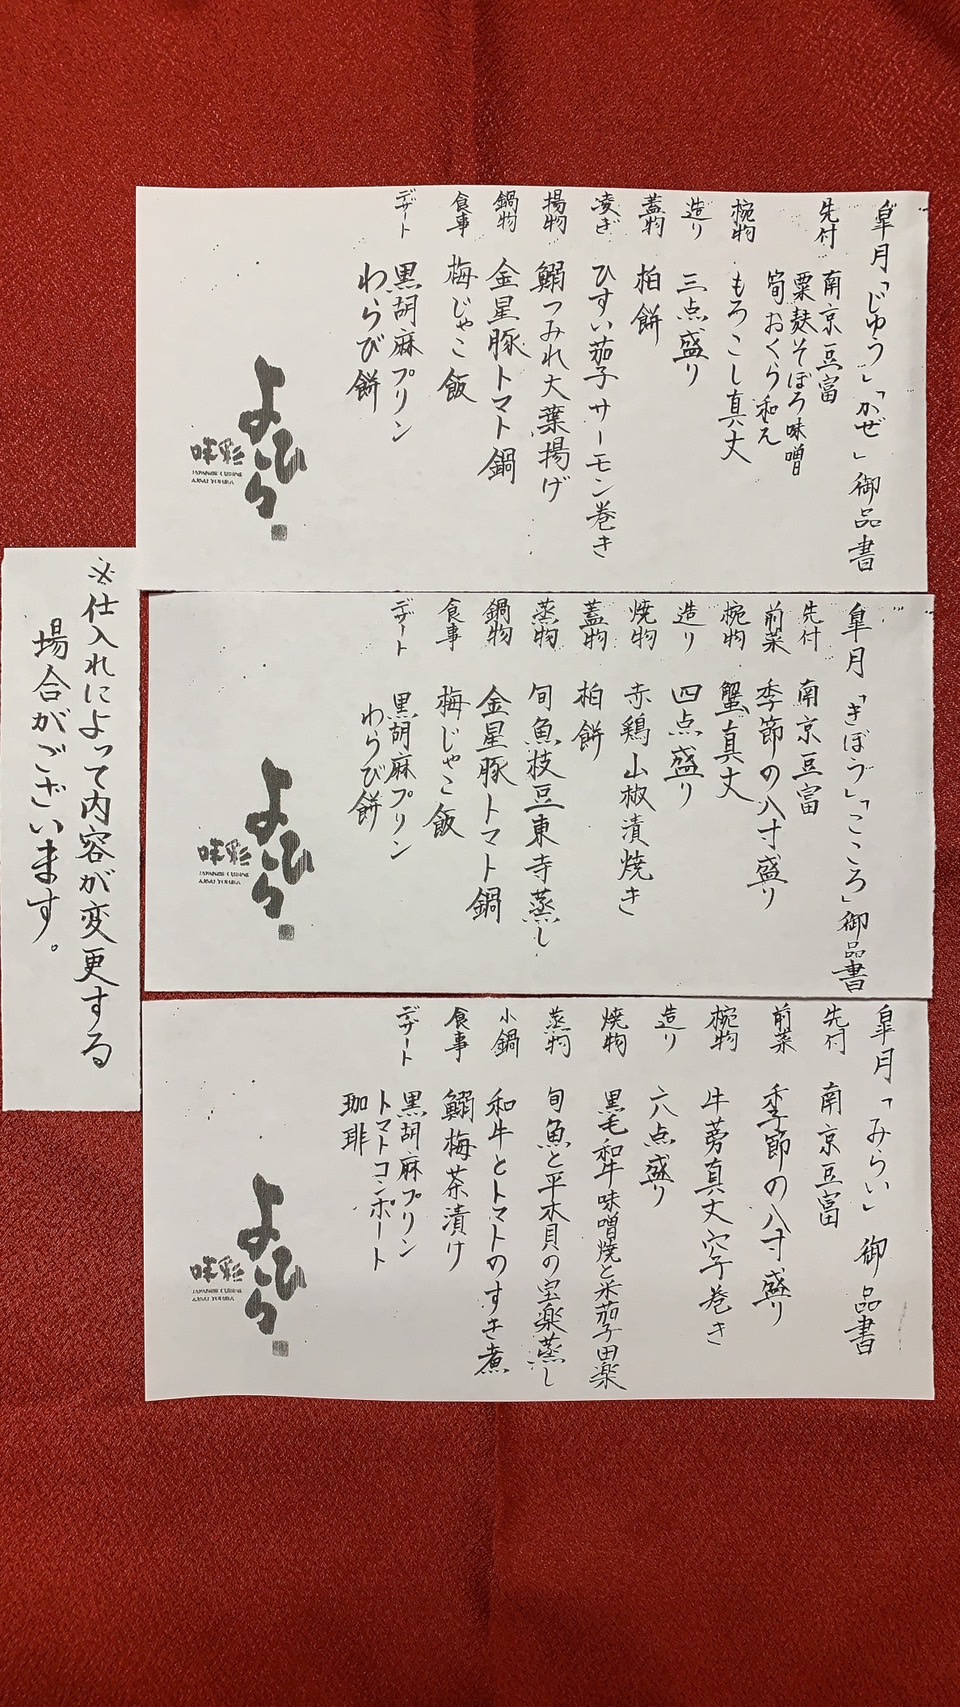 皐月「じゆう」「かぜ」御品書
先付 南京豆富
粟麩そぼろ味噌
筍おくら和え
椀物 もろこし真丈
造り 三点盛り
蓋物 柏餅
凌ぎ ひすい茄子サーモン巻き
揚物 鰯つみれ大葉揚げ
鍋物 金星豚トマト鍋
食事 梅じゃこ飯
デザート 黒胡麻プリン
わらび餅
味彩
よひら
JAPANESE CUISINE
AJISAI YOHIRA
皐月「きぼう」「こころ」御品書
先付 南京豆富
前菜 季節の八寸盛り
椀物 蟹真丈
造り 四点盛り
焼物 赤鶏山椒漬焼き
蓋物 柏餅
蒸物 旬魚枝豆東寺蒸し
鍋物 金星豚トマト鍋
食事 梅じゃこ飯
デザート 黒胡麻プリン
わらび餅
味彩
よひら
JAPANESE CUISINE
AJISAI YOHIRA
皐月「みらい」御品書
先付 南京豆富
前菜 季節の八寸盛り
椀物 牛蒡真丈穴子巻き
造り 六点盛り
焼物 黒毛和牛味噌焼と米茄子田楽
蒸物 旬魚と平木貝の宝楽蒸し
小鍋 和牛とトマトのすき煮
食事 鰯梅茶漬け
デザート 黒胡麻プリン
トマトコンポート
珈琲
味彩
よひら
JAPANESE CUISINE
AJISAI YOHIRA
※仕入れによって内容が変更する
場合がございます。